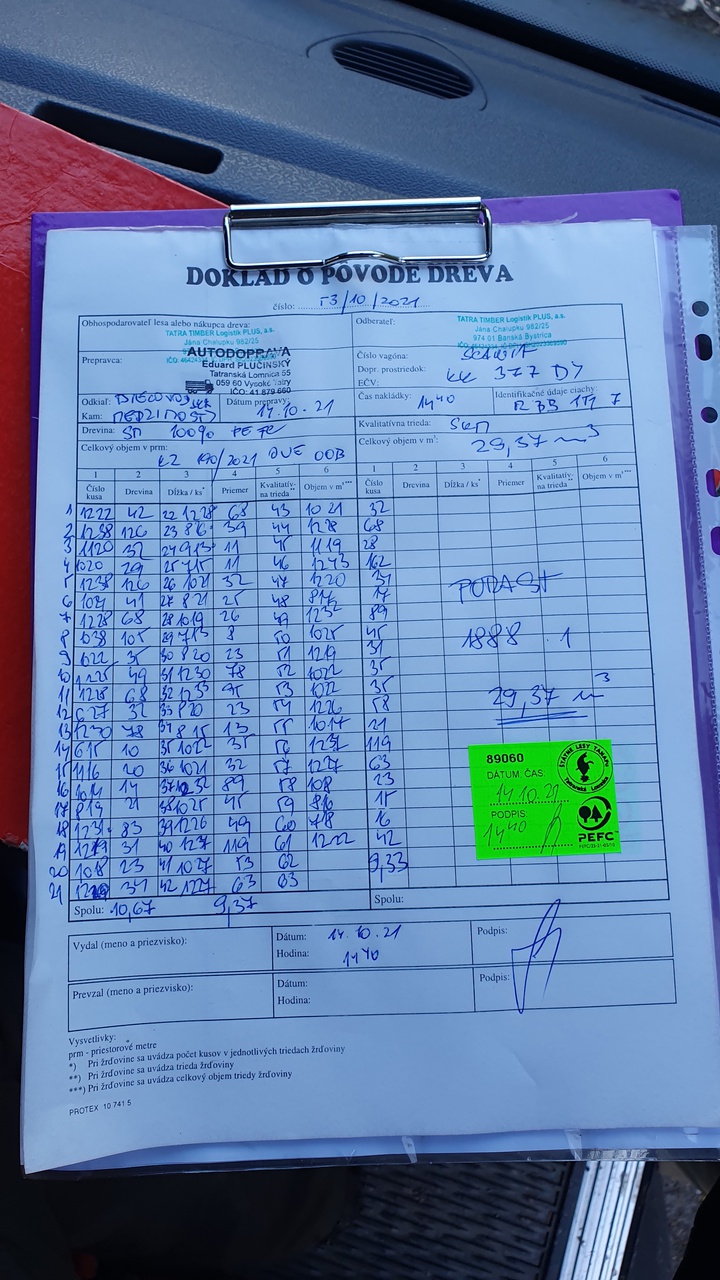 DOKLAD O PÔVODE DREVA
číslo: 13/10/2021
Obhospodarovateľ lesa alebo nákupca dreva:
TATRA TIMBER Logistik PLUS, a.s.
Jána Chalupku 982/25
Odberateľ:
TATRA TIMBER Logistik PLUS, a.s.
Jána Chalupku 982/25
974 01 Banská Bystrica
Prepravca:
AUTODOPRAVA
Eduard PLUČINSKÝ
Tatranská Lomnica 55
059 60 Vysoké Tatry
IČO: 41 879 660
Číslo vagóna: SCANIA
Dopr. prostriedok:
EČV: KK 377 DY
Odkiaľ:
Kam: MEDZILESY
Dátum prepravy: 14.10.21
Čas nakládky: 14 40
Identifikačné údaje ciachy:
Drevina: SM 100% PEFC
Kvalitatívna trieda:
Celkový objem v prm:
190/2021
Celkový objem v m³: 29,37 m3
1 2 3 4 5 6 1 2 3 4 5 6
Číslo kusa Drevina Dĺžka / ks* Priemer Kvalitatív- na trieda** Objem v m³*** Číslo kusa Drevina Dĺžka / ks* Priemer Kvalitatív- na trieda** Objem v m³***
1 1222 42 22 1228 68 43 1021 32
2 1238 126 23 816 39 44 1228 68
3 1120 32 24 913 11 45 1119 28
4 1020 29 25 715 11 46 1243 162
5 1238 126 26 1021 32 47 1220 37
6 1024 41 27 821 25 48 817 17
7 1228 68 28 1019 26 49 1232 89
8 1038 105 29 713 8 50 1025 45
9 1022 35 30 820 23 51 1219 31
10 1225 49 31 1230 78 52 1022 35
11 1228 68 32 1233 95 53 1022 35
12 627 32 33 820 23 54 1226 58
13 1230 78 34 815 13 55 1017 21
14 615 10 35 1022 35 56 1237 119
15 1116 20 36 1021 32 57 1227 63
16 1014 14 37 1232 89 58 108 23
17 819 21 38 1025 45 59 816 15
18 1231 83 39 1226 49 60 718 16
19 1219 31 40 1237 119 61 1222 42
20 1018 23 41 1027 53 62 9,33
21 1220 37 42 1227 63 63
1888 . 1
29,37 m3
89060
DÁTUM. ČAS
14 10.21
PODPIS:
14 40
ŠTÁTNE LESY TANAPu
Tatranská Lomnica
PEFC
Spolu: 10,67 9,37
Spolu:
Vydal (meno a priezvisko):
Dátum: 14.10.21
Hodina: 14 40
Podpis:
Prevzal (meno a priezvisko):
Dátum:
Hodina:
Podpis:
Vysvetlivky:
prm - priestorové metre
*) Pri žrďovine sa uvádza počet kusov v jednotlivých triedach žrďoviny
**) Pri žrďovine sa uvádza trieda žrďoviny
***) Pri žrďovine sa uvádza celkový objem triedy žrďoviny
PROTEX 10 741 5